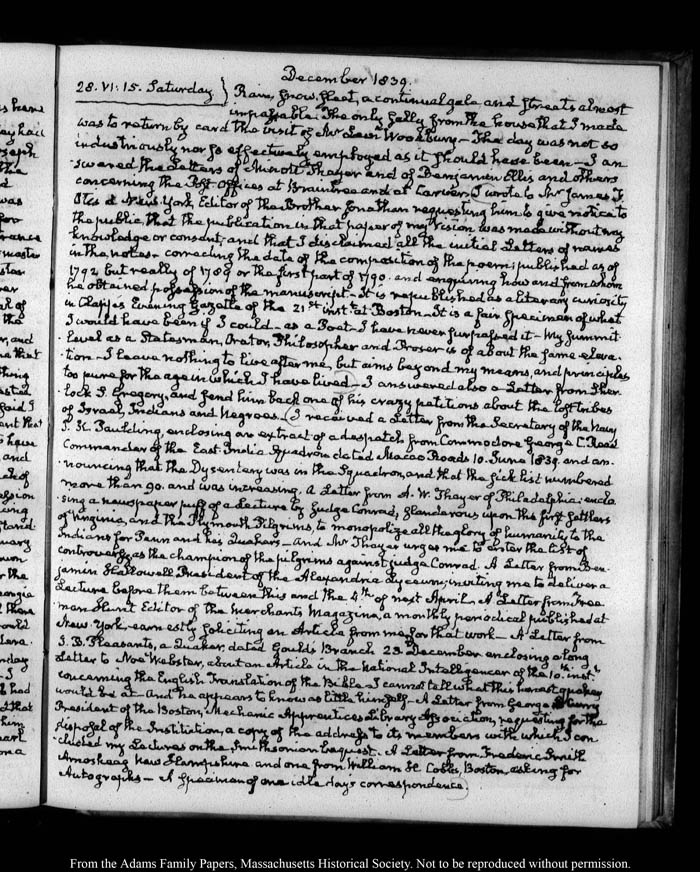 December 1839.
28. VI: 15. Saturday } Rain, Snow, Sleet, a continual gale and streets almost
impassable. The only sally from the house that I made
was to return by card the visit of Mr Levi Woodbury— The day was not so
industriously nor so effectively employed as it should have been— I an-
swered the Letters of Minott Thayer and of Benjamin Ellis and others
concerning the Post-Offices at Braintree and at Carver. I wrote to Mr James F.
Otis at New York, Editor of the Brother Jonathan requesting him to give notice to
the public, that the publication in that paper of my Vision was made without my
knowledge or consent, and that I disclaimed all the initial Letters of names
in the notes— correcting the date of the composition of the poem; published as of
1792 but really of 1789 or the first part of 1790. and enquiring how and from whom
he obtained possession of the manuscript— It is republished as a literary curiosity
in Clapp's Evening Gazette of the 21st inst. at Boston— It is a fair specimen of what
I would have been if I could— as a Poet— I have never surpassed it— My summit
level as a Statesman, Orator, Philosopher and Proser is of about the same eleva-
tion— I leave nothing to live after me, but aims beyond my means, and principles
too pure for the age in which I have lived— I answered also a Letter from Sher-
lock S. Gregory, and send him back one of his crazy petitions about the lost tribes
of Israel, Indians and Negroes— I received a Letter from the Secretary of the Navy
J. K. Paulding, enclosing an extract of a despatch from Commodore George C. Read
Commander of the East-India Squadron dated Macao Roads 10. June 1839. and an-
nouncing that the Dysentery was in the Squadron, and that the sick list numbered
more than 90. and was increasing. A Letter from A. W. Thayer of Philadelphia: enclo-
sing a newspaper puff of a Lecture by Judge Conrad, slanderous upon the first settlers
of Virginia, and the Plymouth Pilgrims, to monopolize all the glory of humanity to the
Indians for Penn and his Quakers— and Mr Thayer urges me to enter the list of
controversy, as the champion of the pilgrims against judge Conrad. A Letter from Ben-
jamin Hallowell President of the Alexandria Lyceum; inviting me to deliver a
Lecture before them between this and the 4th of next April— A Letter from Free-
man Hunt Editor of the Merchants Magazine, a monthly periodical published at
New York, earnestly soliciting an Article from me, for that work— A Letter from
J. B. Pleasants, a Quaker, dated Goulds Branch 23 December enclosing a long
Letter to Noah Webster, about an Article in the National Intelligencer of the 10th inst.
concerning the English Translation of the Bible— I cannot tell what this honest quaker
would be at— And he appears to know as little himself— A Letter from George
President of the Boston, Mechanic Apprentices Library Association, requesting for the
disposal of the Institution, a copy of the address to its members with which I con-
cluded my Lectures on the Smithsonian bequest. A Letter from Frederic Smith
Amoskeag New Hampshire and one from William H. Cobbs, Boston, asking for
Autographs— A Specimen of one idle day's correspondence.
From the Adams Family Papers, Massachusetts Historical Society. Not to be reproduced without permission.